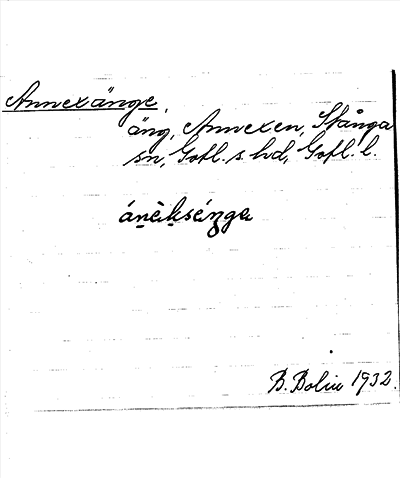 Annexänge,
äng, Annexen, Stånga
sn, Gotl. s. hd, Gotl. l.
áṉèḵséŋga
B. Bolin 1932.